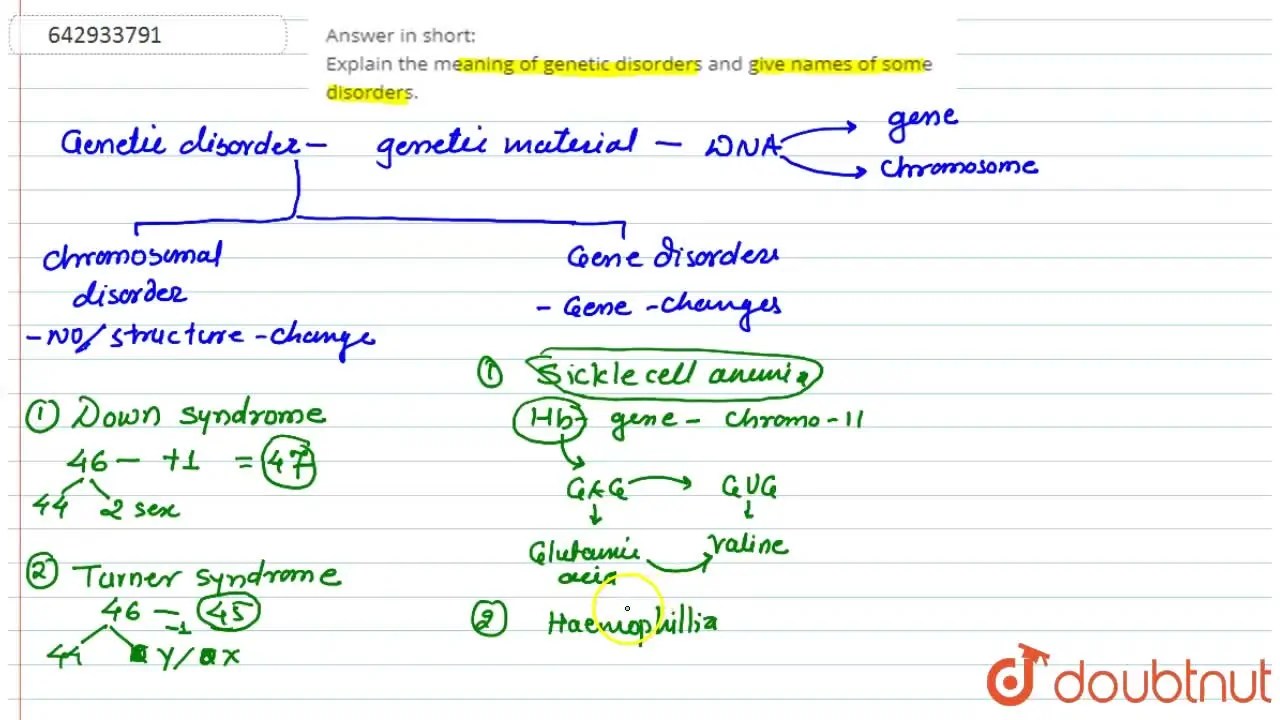 642933791
Answer in short:
Explain the meaning of genetic disorders and give names of some
disorders.
Genetic disorder - genetic material - DNA
gene
chromosome
chromosomal
disorder
- NO/ structure - change
Gene disorders
- Gene - changes
① Down syndrome
46 - +1 = 47
44 2 sex
② Turner syndrome
46 - 45
-1
44 Y/ X
① Sickle cell anemia
Hb - gene - chromo - 11
GAG GUG
Glutamic
acid
valine
② Haemophillia
doubtnut